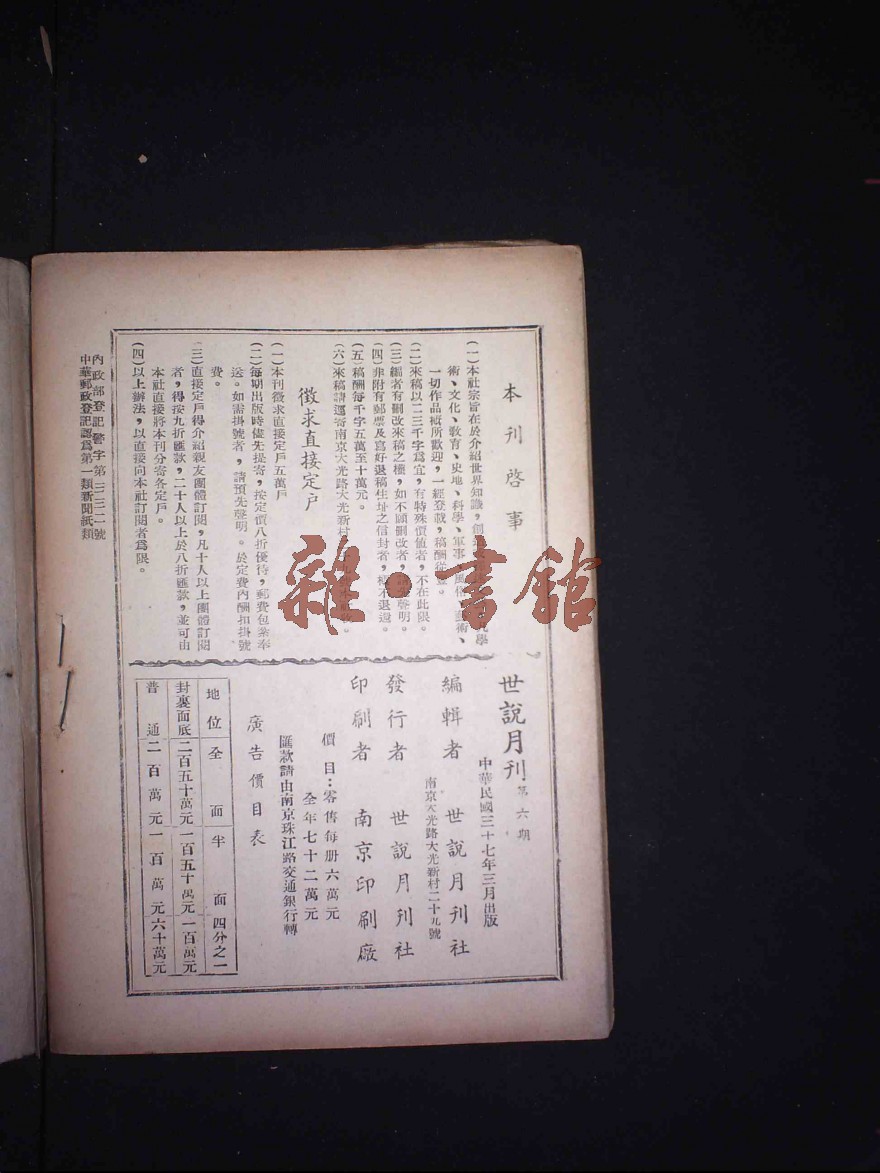 本刊啓事
(一)本社宗旨在於介紹世界知識，創
學
術、文化、教育、史地、科學、軍事、風俗、藝術、
一切作品概所歡迎，一經登載，稿酬從豐。
(二)來稿以二三千字爲宜，有特殊價值者，不在此限。
(三)編者有刪改來稿之權，如不願刪改者，聲明。
(四)非附有郵票及寫好退稿住址之信封者，概不退還。
(五)稿酬每千字五萬至十萬元。
(六)來稿請逕寄南京大光路大光新村
徵求直接定戶
(一)本刊徵求直接定戶五萬戶
(二)每期出版時儘先提寄，按定價八折優待，郵費包紮奉
送。如需掛號者，請預先聲明。於定費內酬扣掛號
費。
(三)直接定戶得介紹親友團體訂閱，凡十人以上團體訂閱
者，得按九折匯款，二十人以上於八折匯款，並可由
本社直接將本刊分寄各定戶。
(四)以上辦法，以直接向本社訂閱者爲限。
世說月刊 第六期
中華民國三十七年三月出版
編輯者 世說月刊社
南京大光路大光新村二十九號
發行者 世說月刊社
印刷者 南京印刷廠
價目：零售每册六萬元
全年七十二萬元
匯款請由南京珠江路交通銀行轉
廣告價目表
地位 全面 半面 四分之一
封裏面底 二百五十萬元 一百五十萬元 一百萬元
普通 二百萬元 一百萬元 六十萬元
內政部登記警字第三二一號
中華郵政登記認爲第一類新聞紙類
雜·書館